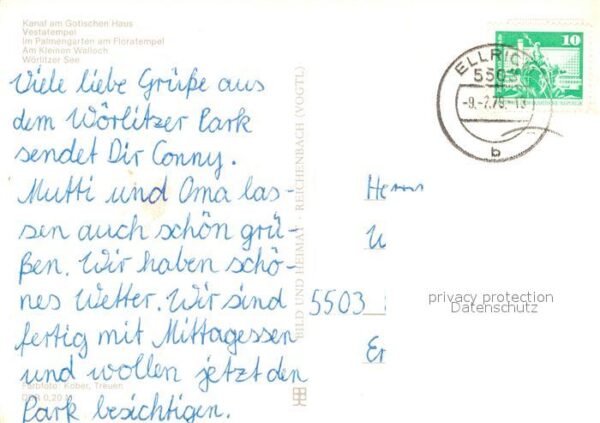 Kanal am Gotischen Haus
Vestatempel
Im Palmengarten am Floratempel
Am Kleinen Walloch
Wörlitzer See
Viele liebe Grüße aus
dem Wörlitzer Park
sendet Dir Conny.
Mutti und Oma las-
sen auch schön grü-
ßen. Wir haben schö-
nes Wetter. Wir sind
fertig mit Mittagessen
und wollen jetzt den
Park besichtigen.
Farbfoto: Kober, Treuen
BILD UND HEIMAT · REICHENBACH (VOGTL)
10
ELLRIC
5503
b
Herrn
5503
privacy protection
Datenschutz